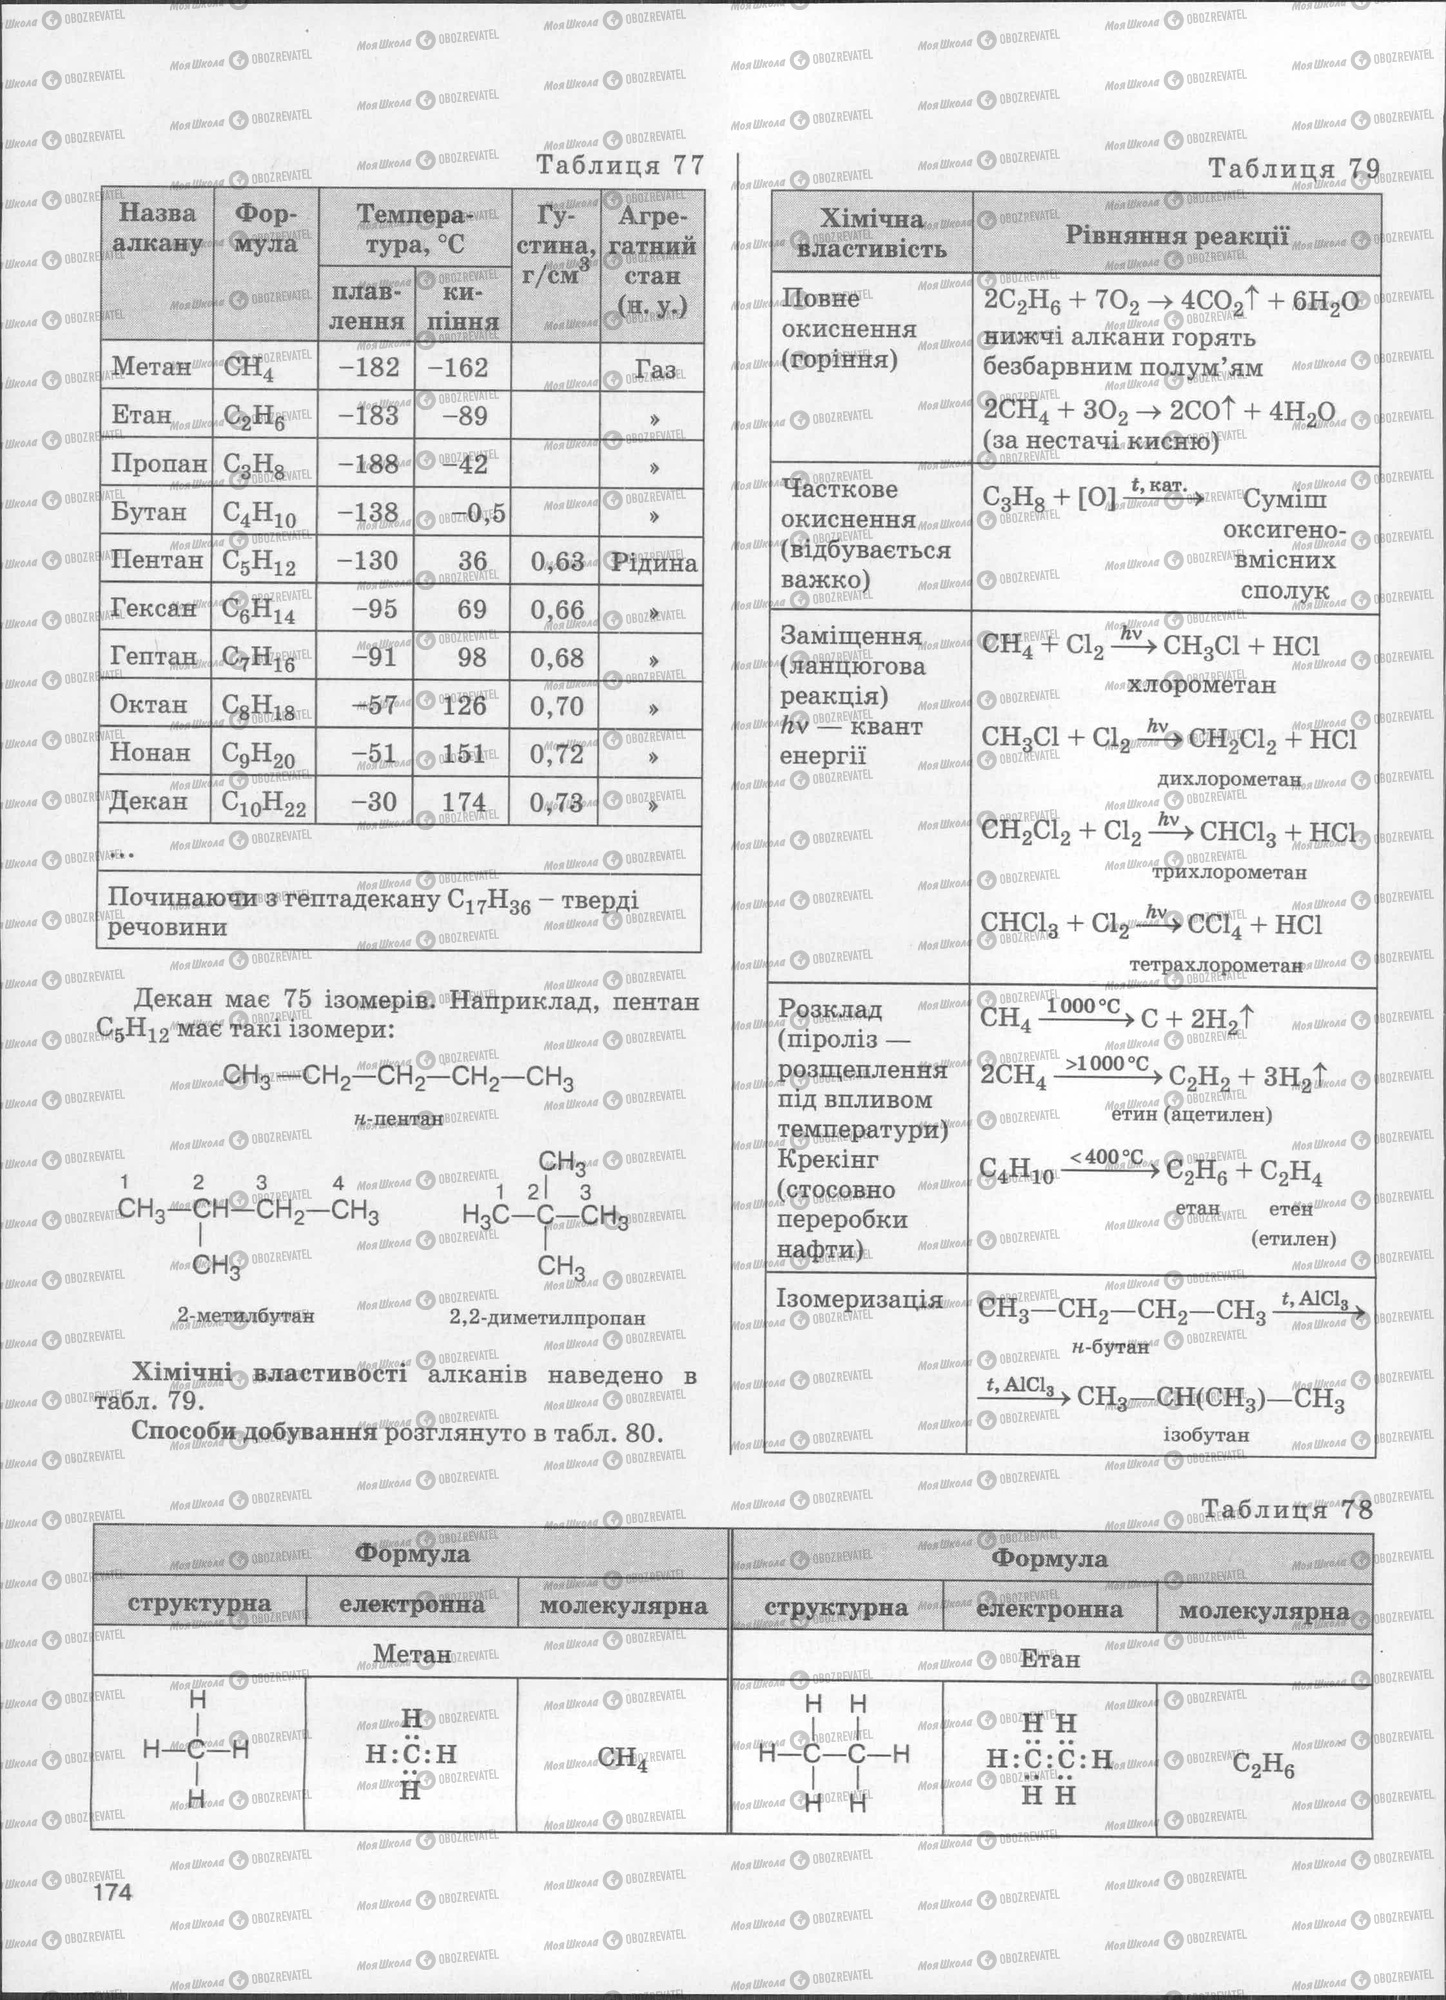 Таблиця 77
Назва алкану | Фор- мула | Темпера- тура, °С | Гу- стина, г/см³ | Агре- гатний стан (н. у.)
плав- лення | ки- піння
Метан | CH₄ | −182 | −162 | | Газ
Етан | C₂H₆ | −183 | −89 | | »
Пропан | C₃H₈ | −188 | −42 | | »
Бутан | C₄H₁₀ | −138 | −0,5 | | »
Пентан | C₅H₁₂ | −130 | 36 | 0,63 | Рідина
Гексан | C₆H₁₄ | −95 | 69 | 0,66 | »
Гептан | C₇H₁₆ | −91 | 98 | 0,68 | »
Октан | C₈H₁₈ | −57 | 126 | 0,70 | »
Нонан | C₉H₂₀ | −51 | 151 | 0,72 | »
Декан | C₁₀H₂₂ | −30 | 174 | 0,73 | »
...
Починаючи з гептадекану C₁₇H₃₆ – тверді
речовини
Декан має 75 ізомерів. Наприклад, пентан
C₅H₁₂ має такі ізомери:
CH₃—CH₂—CH₂—CH₂—CH₃
н-пентан
1 2 3 4
CH₃—CH—CH₂—CH₃
CH₃
2-метилбутан
CH₃
1 2 3
H₃C—C—CH₃
CH₃
2,2-диметилпропан
Хімічні властивості алканів наведено в
табл. 79.
Способи добування розглянуто в табл. 80.
Таблиця 79
Хімічна
властивість
Рівняння реакції
Повне
окиснення
(горіння)
2C₂H₆ + 7O₂ → 4CO₂↑ + 6H₂O
нижчі алкани горять
безбарвним полум’ям
2CH₄ + 3O₂ → 2CO↑ + 4H₂O
(за нестачі кисню)
Часткове
окиснення
(відбувається
важко)
C₃H₈ + [O] t, кат. → Суміш
оксигено-
вмісних
сполук
Заміщення
(ланцюгова
реакція)
hν — квант
енергії
CH₄ + Cl₂ hν → CH₃Cl + HCl
хлорометан
CH₃Cl + Cl₂ hν → CH₂Cl₂ + HCl
дихлорометан
CH₂Cl₂ + Cl₂ hν → CHCl₃ + HCl
трихлорометан
CHCl₃ + Cl₂ hν → CCl₄ + HCl
тетрахлорометан
Розклад
(піроліз —
розщеплення
під впливом
температури)
Крекінг
(стосовно
переробки
нафти)
CH₄ 1000 °C → C + 2H₂↑
2CH₄ >1000 °C → C₂H₂ + 3H₂↑
етин (ацетилен)
C₄H₁₀ <400 °C → C₂H₆ + C₂H₄
етан етен
(етилен)
Ізомеризація
CH₃—CH₂—CH₂—CH₃ t, AlCl₃ →
н-бутан
t, AlCl₃ → CH₃—CH(CH₃)—CH₃
ізобутан
Таблиця 78
Формула | Формула
структурна | електронна | молекулярна | структурна | електронна | молекулярна
Метан | Етан
H
H—C—H
H
H
H:C:H
H
CH₄
H H
H—C—C—H
H H
H H
H:C:C:H
H H
C₂H₆
174
Моя Школа OBOZREVATEL